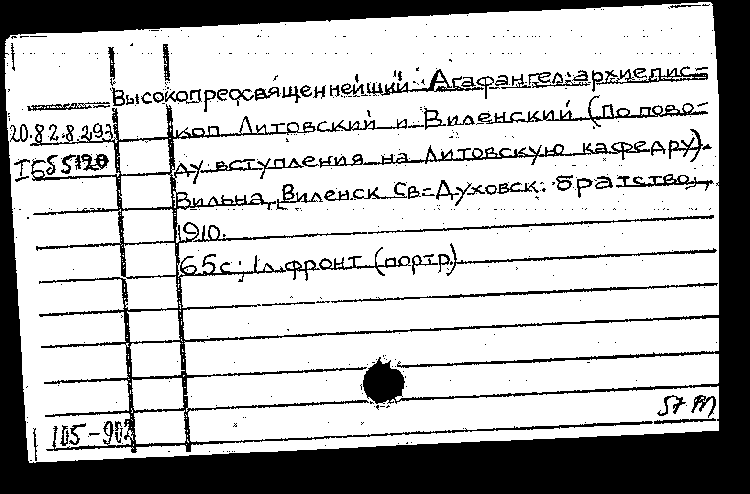 Высокопреосвященнейший Агафангел архиепис-
20.82.8.293 коп Литовский и Виленский (По пово-
ду вступления на Литовскую кафедру).
Вильна, Виленск Св-Духовск. братство,
1910.
65с; 1л. фронт (портр)
105-902